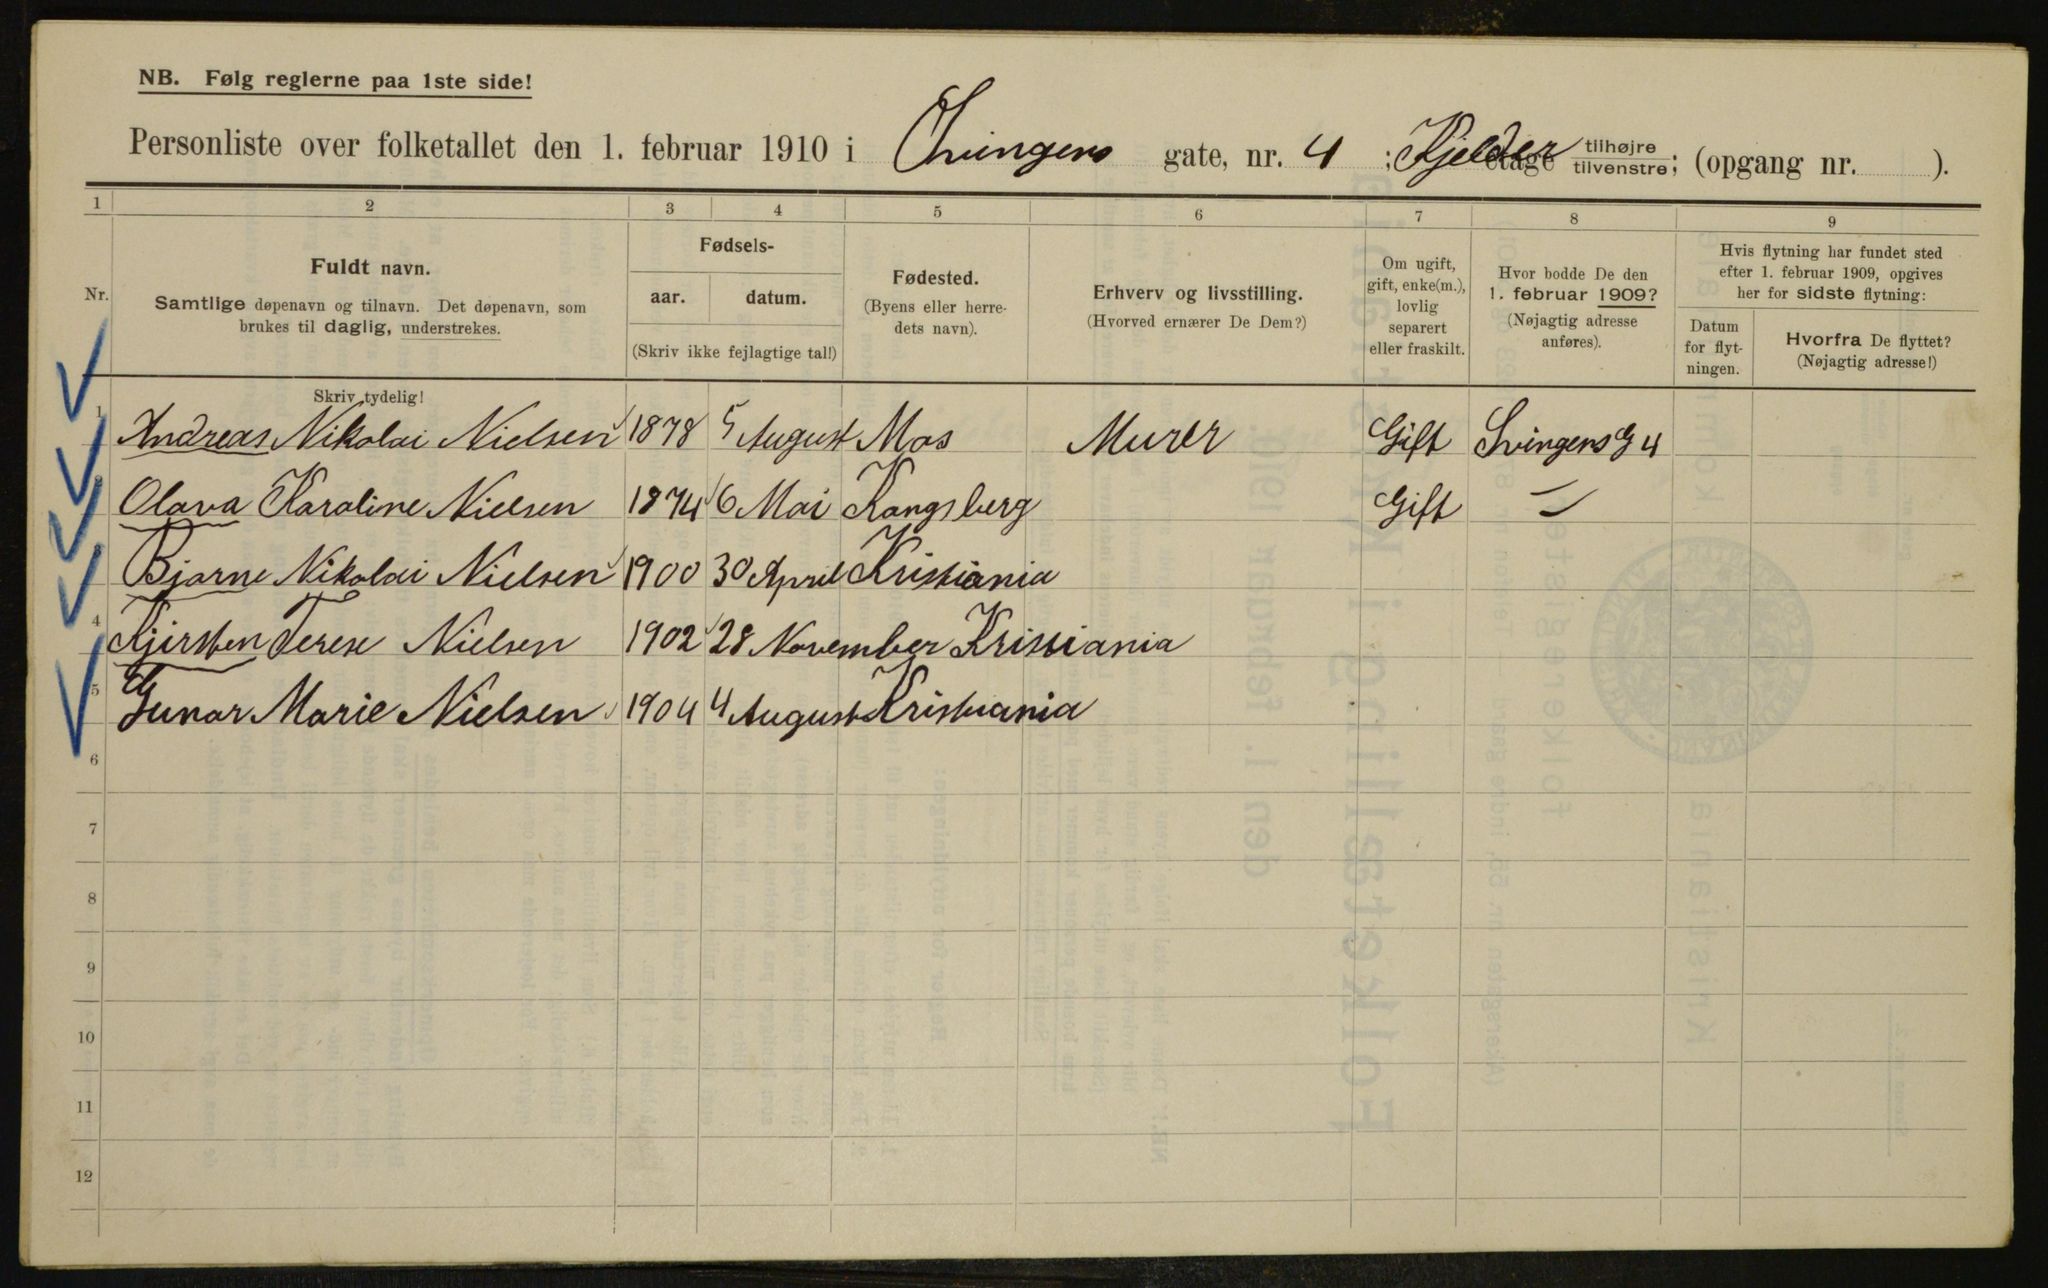 NB. Følg reglerne paa 1ste side!
Personliste over folketallet den 1. februar 1910 i Svingens gate, nr. 4 ; Kjelder etage tilhøjre tilvenstre; (opgang nr. ).
1 2 3 4 5 6 7 8 9
Nr.
Fuldt navn.
Samtlige døpenavn og tilnavn. Det døpenavn, som
brukes til daglig, understrekes.
Skriv tydelig!
Fødsels-
aar. datum.
(Skriv ikke fejlagtige tal!)
Fødested.
(Byens eller herre-
dets navn).
Erhverv og livsstilling.
(Hvorved ernærer De Dem?)
Om ugift,
gift, enke(m.),
lovlig
separert
eller fraskilt.
Hvor bodde De den
1. februar 1909?
(Nøjagtig adresse
anføres).
Hvis flytning har fundet sted
efter 1. februar 1909, opgives
her for sidste flytning:
Datum
for flyt-
ningen.
Hvorfra De flyttet?
(Nøjagtig adresse!)
1 Andreas Nikolai Nielsen 1878 5 August Mos Murer Gift Svingens G 4
Olava Karoline Nielsen 1874 6 Mai Kongsberg Gift
3 Bjarne Nikolai Nielsen 1900 30 April Kristiania
4 Kjirsten Terese Nielsen 1902 28 November Kristiania
5 Gunar Marie Nielsen 1904 4 August Kristiania
6
7
8
9
10
11
12